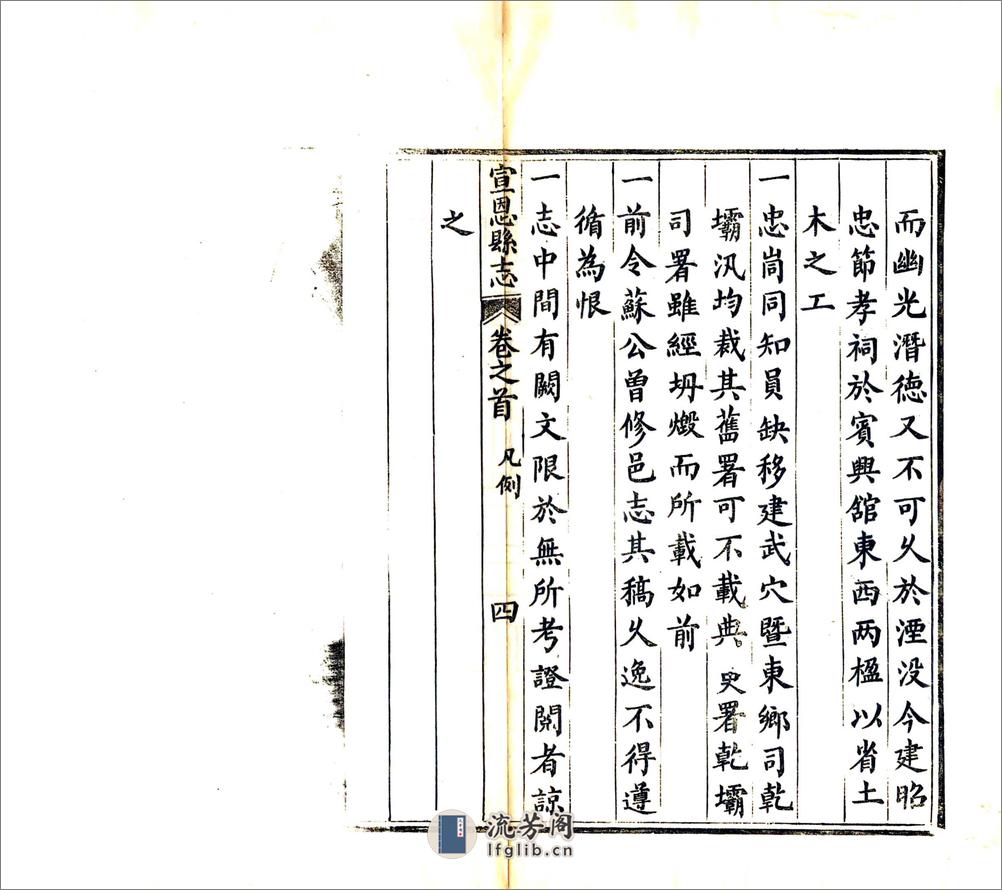 而幽光潛德又不可久於湮没今建昭
忠節孝祠於賓興舘東西两楹以省土
木之工
一忠峝同知員缺移建武穴暨東鄉司乾
壩汛均裁其舊署可不載典史署乾壩
司署雖經坍燬而所載如前
一前令蘇公曽修邑志其稿久逸不得遵
循為恨
一志中間有闕文限於無所考證閱者諒
宣恩縣志 卷之首 凡例 四
之
流芳阁
lfglib.cn